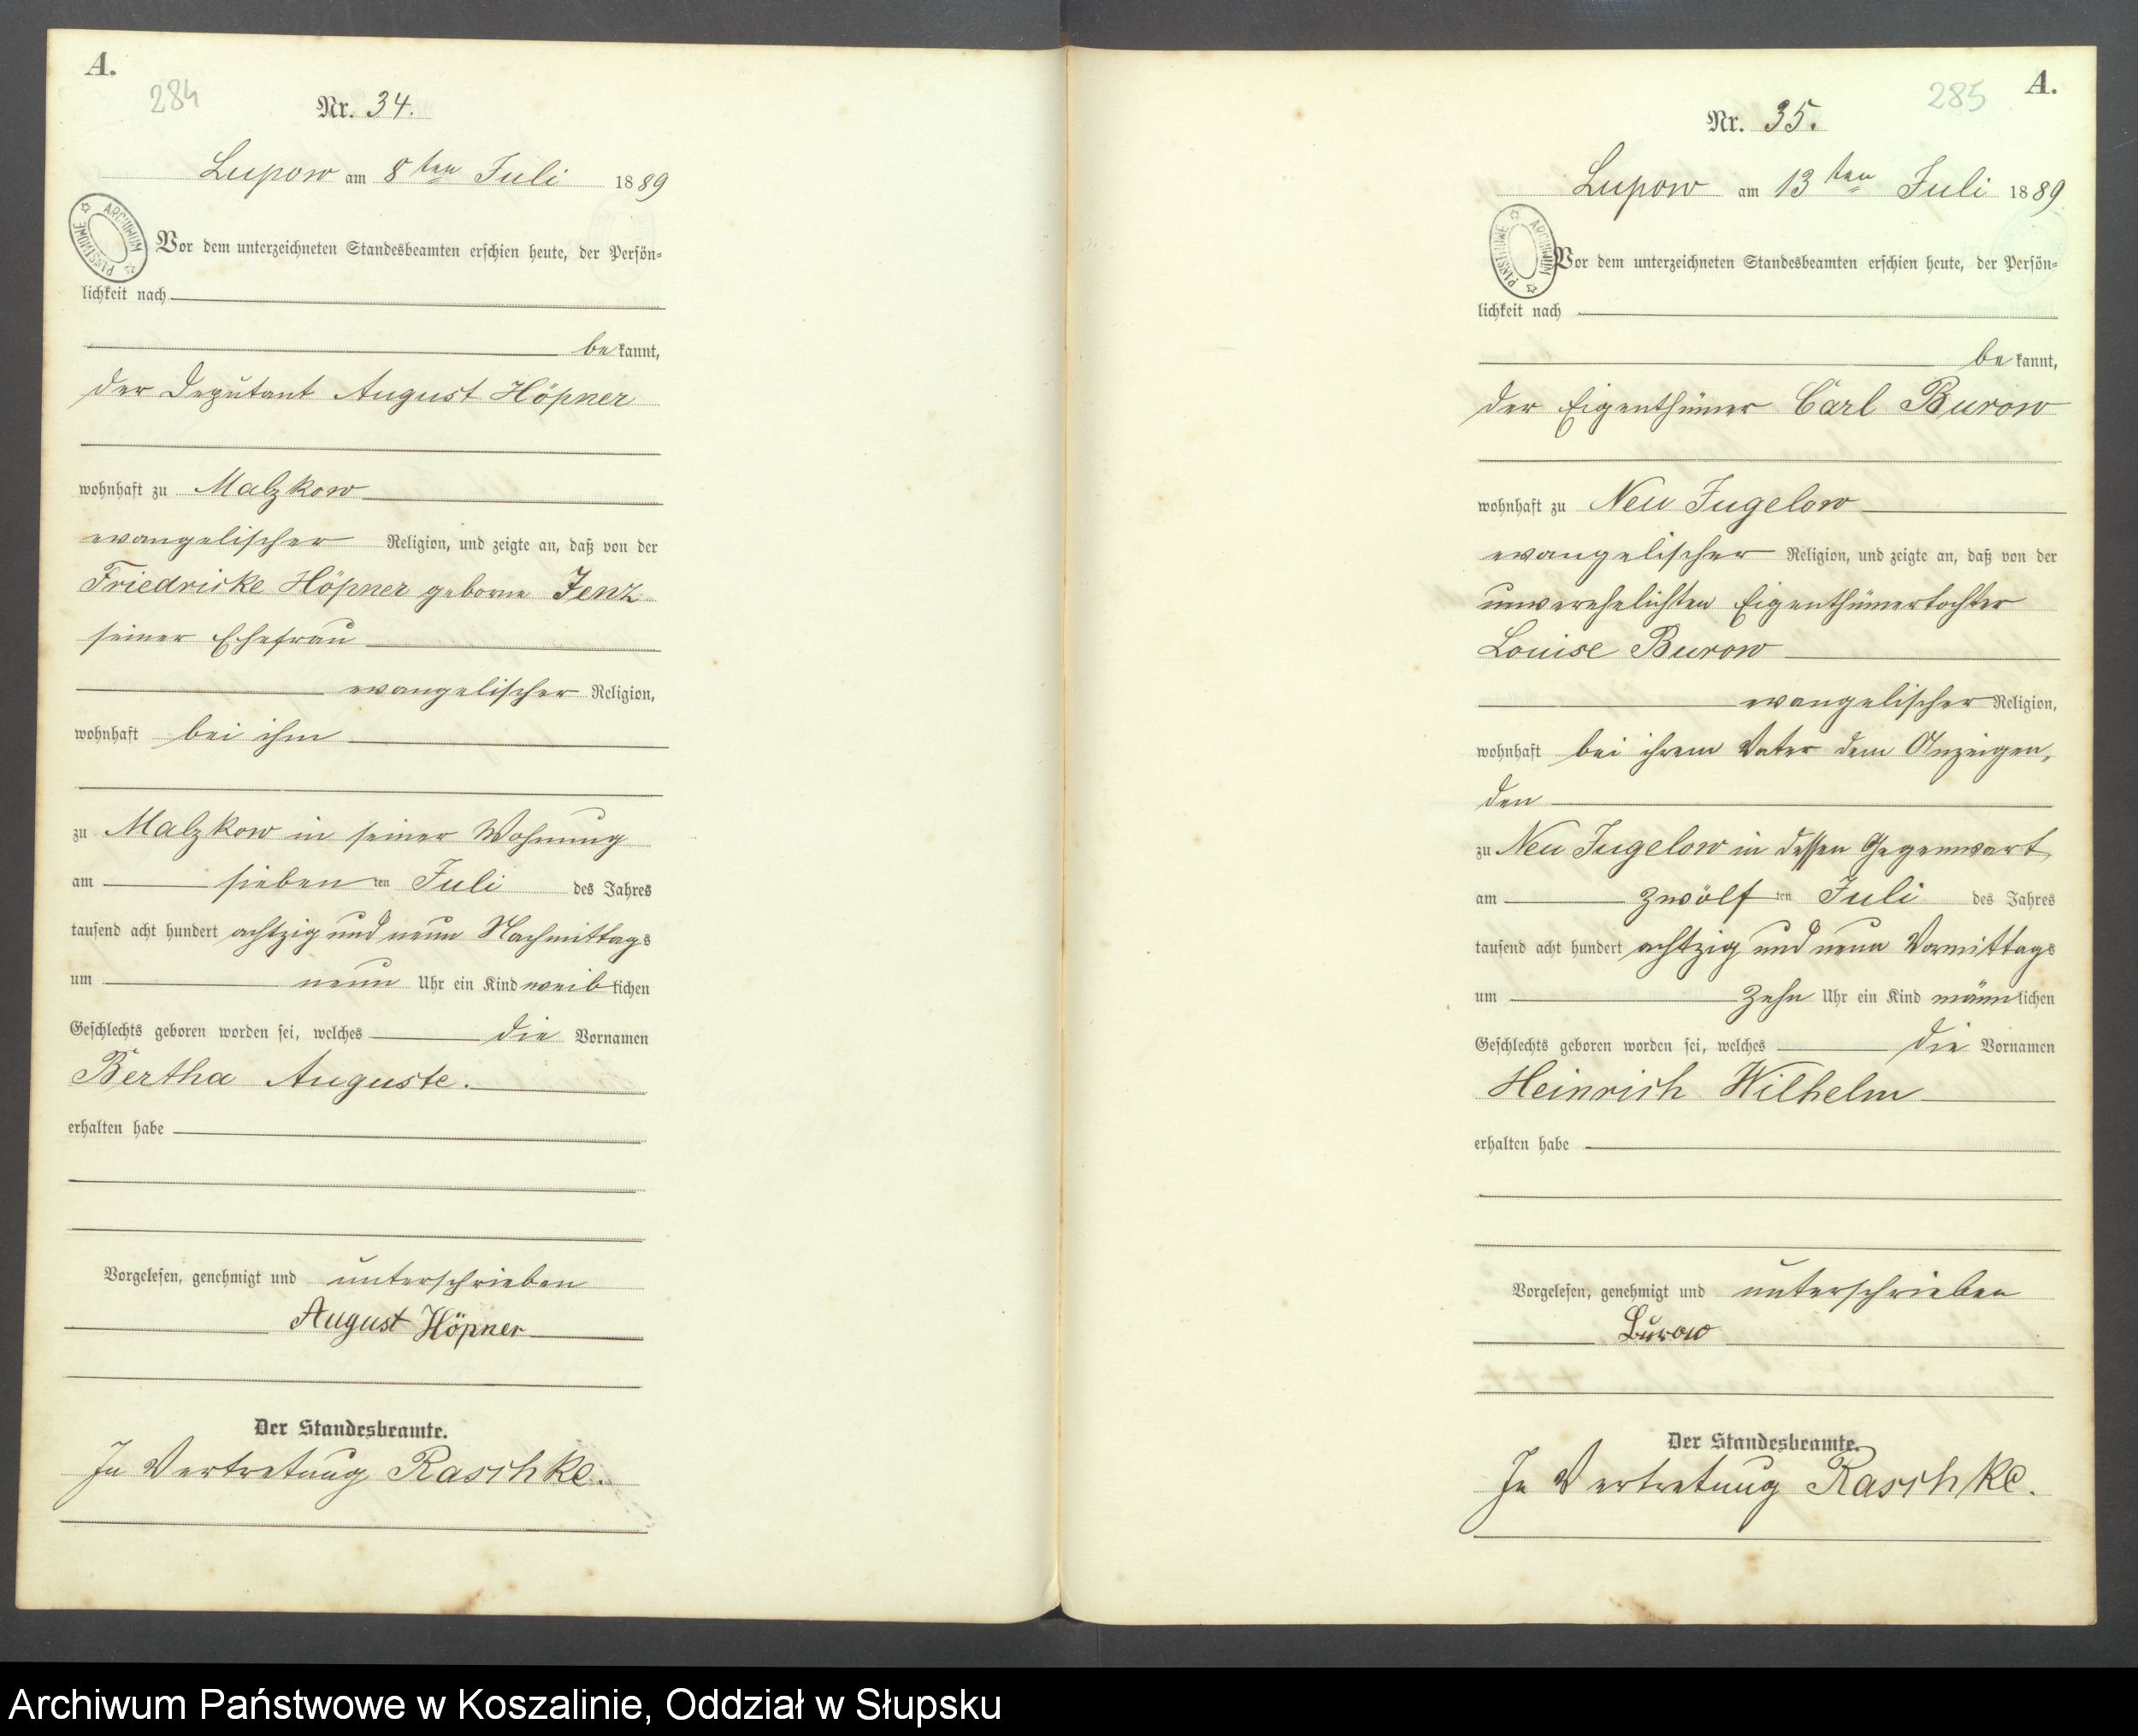 A.
284
Nr. 34.
Lupow am 8ten Juli 1889
ARCHIWUM PAŃSTWOWE
Vor dem unterzeichneten Standesbeamten erschien heute, der Persön-
lichkeit nach
bekannt,
der Deputant August Höpner
wohnhaft zu Malzkow
evangelischer Religion, und zeigte an, daß von der
Friedricke Höpner geborne Jenz
seiner Ehefrau
evangelischer Religion,
wohnhaft bei ihm
zu Malzkow in seiner Wohnung
am siebenten Juli des Jahres
tausend acht hundert achtzig und neun Nachmittags
um neun Uhr ein Kind weiblichen
Geschlechts geboren worden sei, welches die Vornamen
Bertha Auguste.
erhalten habe
Vorgelesen, genehmigt und unterschrieben
August Höpner
Der Standesbeamte.
In Vertretung Raschke.
A.
285
Nr. 35.
Lupow am 13ten Juli 1889
ARCHIWUM PAŃSTWOWE
Vor dem unterzeichneten Standesbeamten erschien heute, der Persön-
lichkeit nach
bekannt,
der Eigenthümer Carl Burow
wohnhaft zu Neu Jugelow
evangelischer Religion, und zeigte an, daß von der
unverehelichten Eigenthümertochter
Louise Burow
evangelischer Religion,
wohnhaft bei ihrem Vater dem Anzeigen,
den
zu Neu Jugelow in dessen Gegenwart
am zwölften Juli des Jahres
tausend acht hundert achtzig und neun Vormittags
um zehn Uhr ein Kind männlichen
Geschlechts geboren worden sei, welches die Vornamen
Heinrich Wilhelm
erhalten habe
Vorgelesen, genehmigt und unterschrieben
Burow
Der Standesbeamte.
In Vertretung Raschke.
Archiwum Państwowe w Koszalinie, Oddział w Słupsku